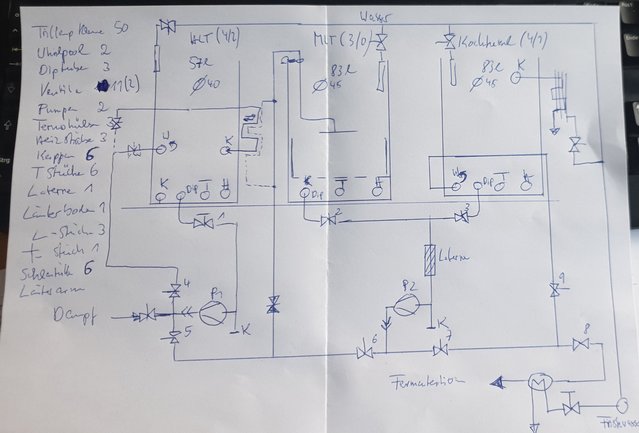 Wasser
HLT (4/2)
57L
Ø40
MLT (3/0)
83L
Ø45
Kochkessel (4/1)
83L
Ø45
K
50
Whirlpool 2
Diptubes 3
Ventile 11(2)
Pumpen 2
Heizstäbe 3
Kappen 6
T Stücke 6
Laterne 1
Läuterboden 1
L-Stück 3
+ stück 1
6
W
K
Dip
T
H
Dip
T
H
W
Dip
T
H
1
2
3
Laterne
4
P1
5
K
Dampf
P2
K
6
7
9
8
Fermentation
M